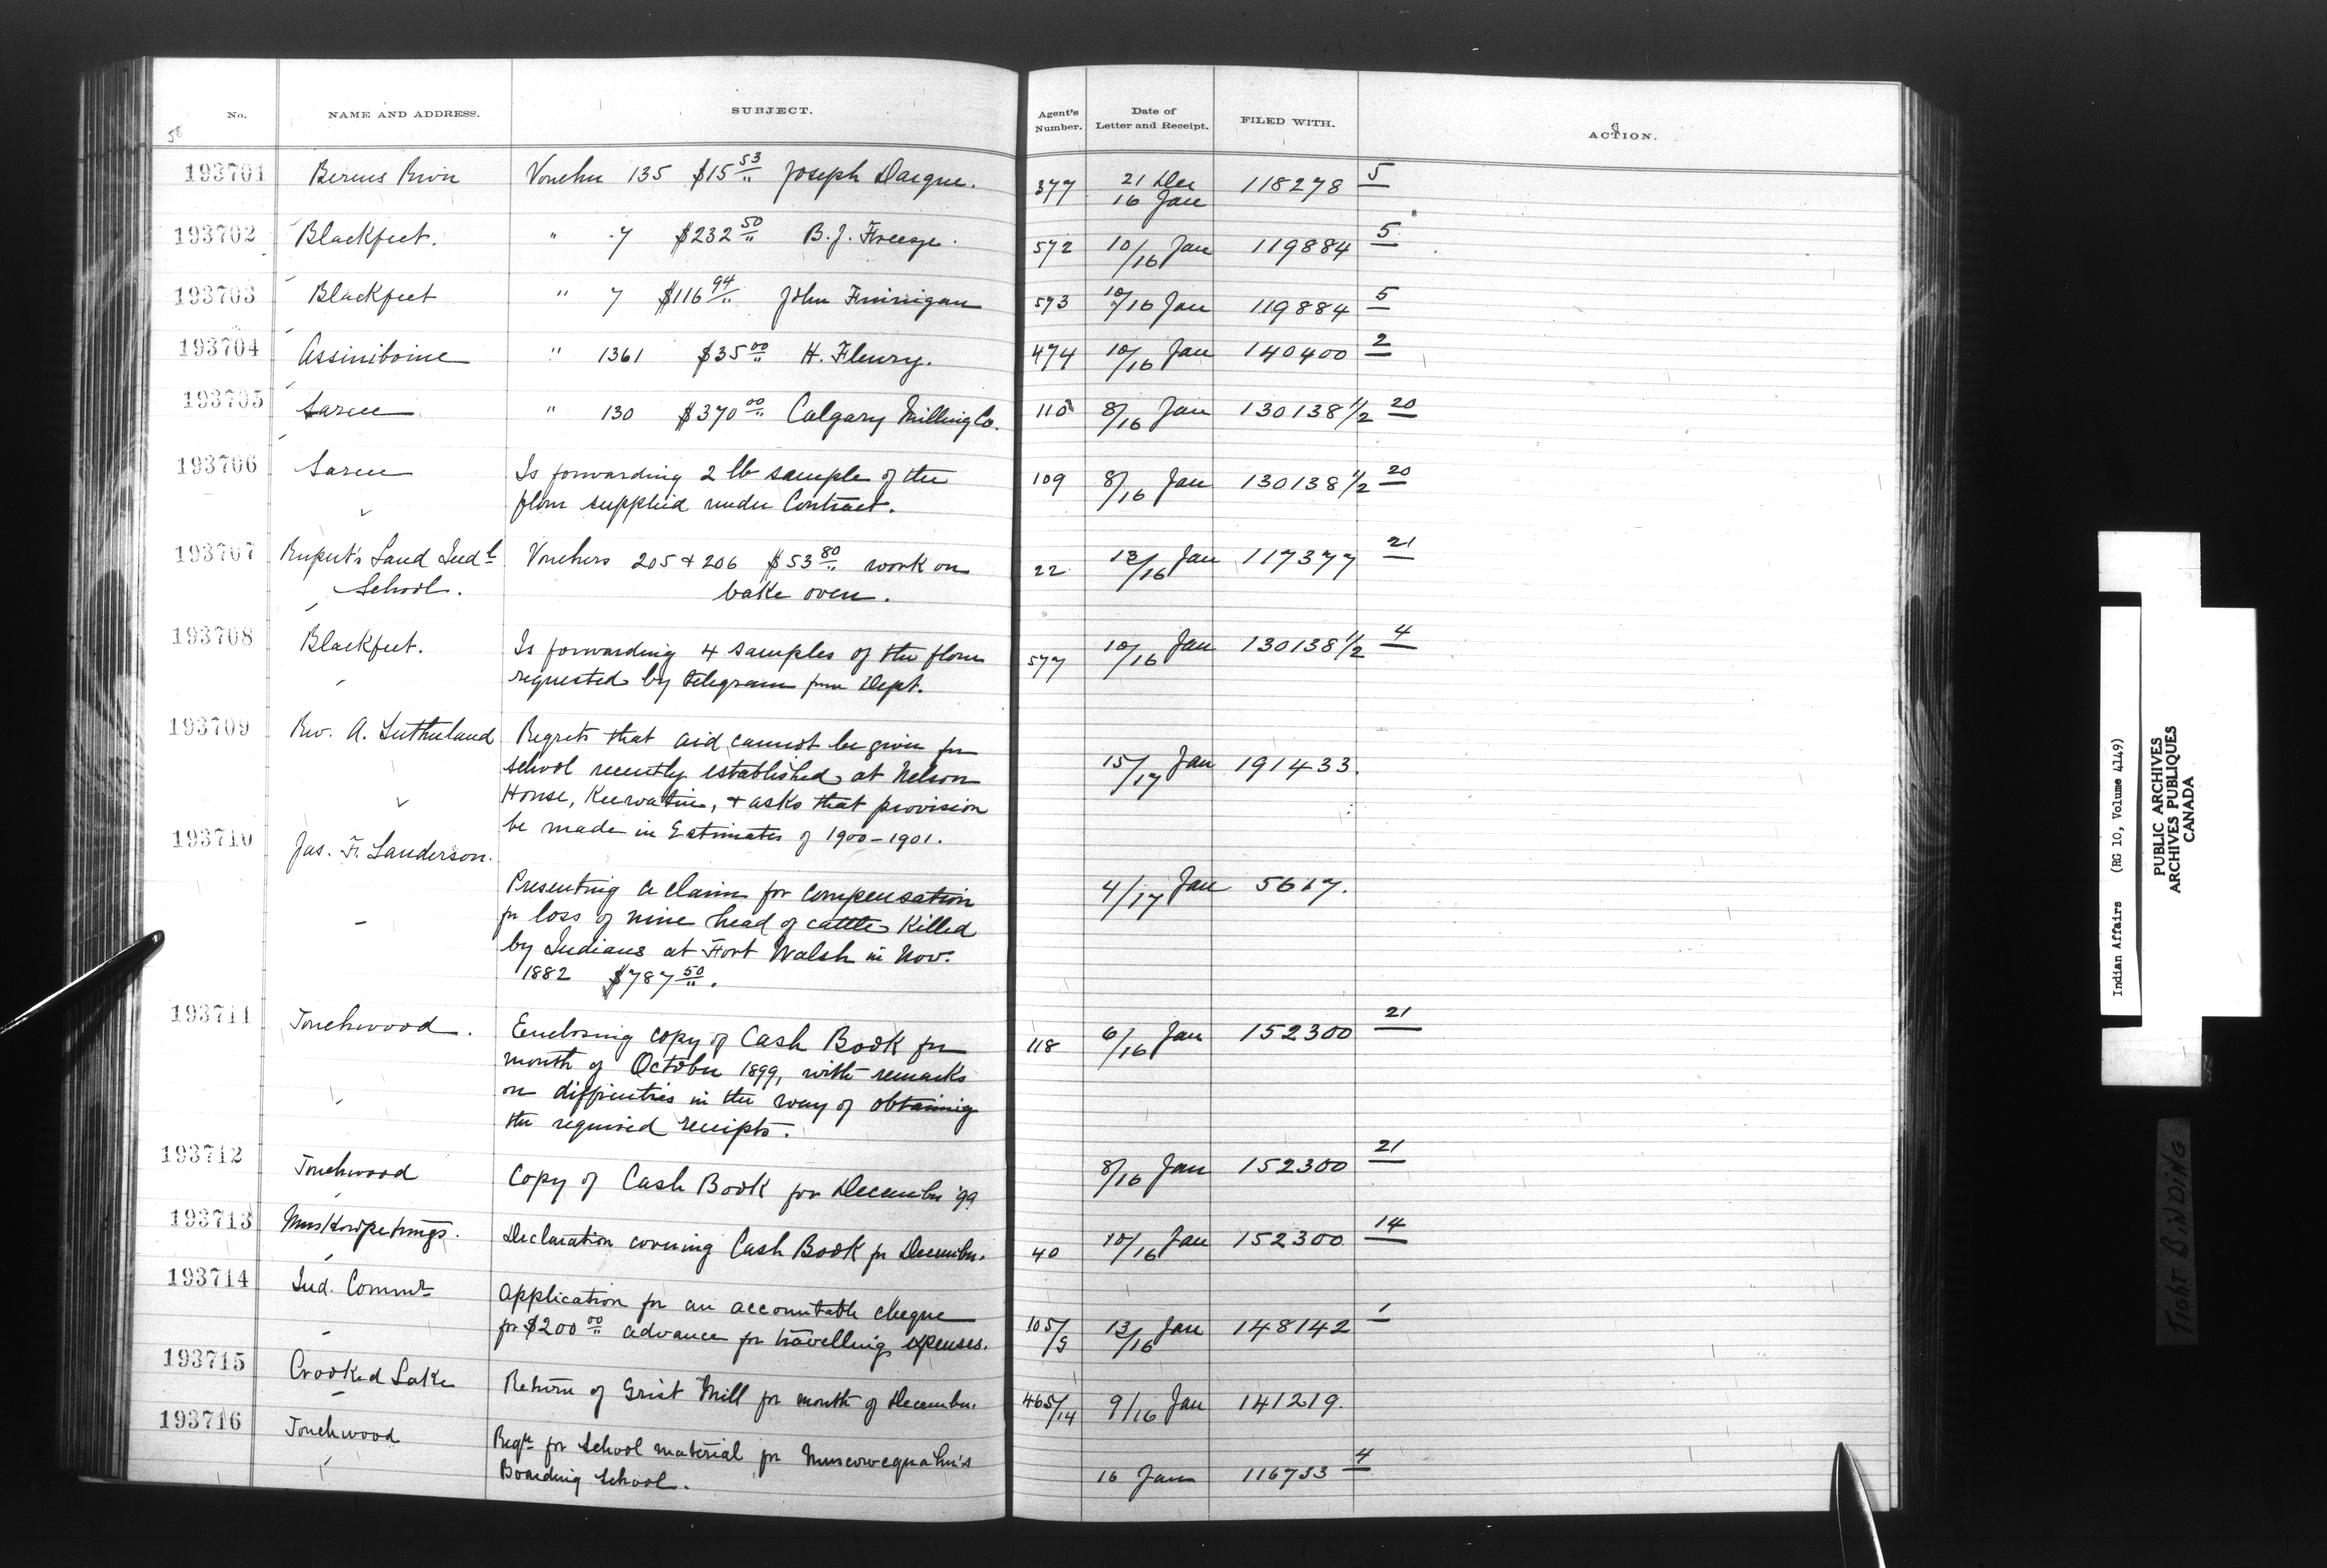 No. NAME AND ADDRESS. SUBJECT. Agent's Number. Date of Letter and Receipt. FILED WITH. ACTION.
58
193701 Berens River Voucher 135 $15 53/" Joseph Daigne. 377 21 Dec 118278 5
16 Jan
193702 Blackfeet. " 7 $232 50/" B. J. Freeze. 572 10/16 Jan 119884 5
193703 Blackfeet " 7 $116 94/" John Finnigan 573 10/16 Jan 119884 5
193704 Assiniboine " 1361 $35 00/" H. Fleury. 474 10/16 Jan 140400 2
193705 Sarcee " 130 $370 00/" Calgary Milling Co. 110 8/16 Jan 130138 1/2 20
193706 Sarcee Is forwarding 2 lb sample of the 109 8/16 Jan 130138 1/2 20
flour supplied under Contract.
193707 Rupert's Land Indl Vouchers 205 & 206 $53 80/" work on 22 13/16 Jan 117377 21
School. bake oven.
193708 Blackfeet. Is forwarding 4 samples of the flour 577 10/16 Jan 130138 1/2 4
requested by telegram from Dept.
193709 Rev. A. Sutherland Regrets that aid cannot be given for
school recently established at Nelson 15/17 Jan 191433.
House, Keewatin, & asks that provision
be made in Estimates of 1900-1901.
193710 Jas. F. Sanderson.
Presenting a claim for compensation 4/17 Jan 5617.
for loss of nine head of cattle killed
by Indians at Fort Walsh in Nov.
1882 $787 50/".
193711 Touchwood. Enclosing copy of Cash Book for 118 6/16 Jan 152300 21
month of October 1899, with remarks
on difficulties in the way of obtaining
the required receipts.
193712 Touchwood Copy of Cash Book for December '99 8/16 Jan 152300 21
193713 Muskowpetungs. Declaration covering Cash Book for December. 40 10/16 Jan 152300 14
193714 Ind. Commr Application for an accountable cheque 105/9 13/16 Jan 148142 1
for $200 00/" advance for travelling expenses.
193715 Crooked Lake Return of Grist Mill for month of December. 465/14 9/16 Jan 141219.
193716 Touchwood Reqn for School material for Muscowequahn's 16 Jan 116733 4
Boarding School.
Indian Affairs (RG 10, Volume 4149)
PUBLIC ARCHIVES
ARCHIVES PUBLIQUES
CANADA
TIGHT BINDING